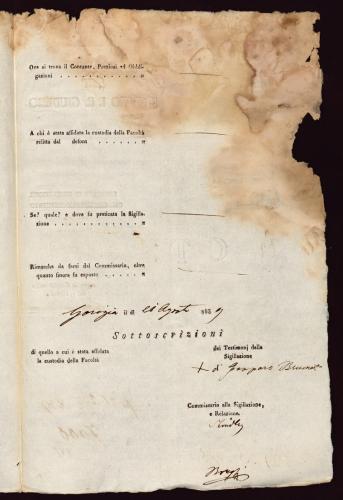 Ove si trova il Contante, Preziosi ed Obbligazioni
A chi è stata affidata la custodia della Facoltà relitta dal defonto
Se? quale? e dove fu praticata la Sigillazione
Rimarche da farsi dal Commissario, oltre quanto finora fu esposto
Gorizia li 28 Agosto 183
Sottoscrizioni
di quello a cui è stata affidata
la custodia della Facoltà
dei Testimonj della
Sigillazione
+ di Gasparo
Commissario alla Sigillazione,
e Relazione